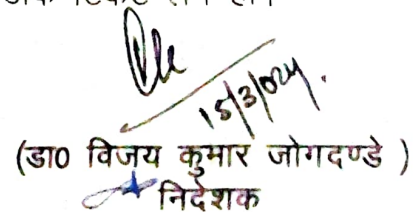 15/3/024.
(डा0 विजय कुमार जोगदण्डे )
निदेशक